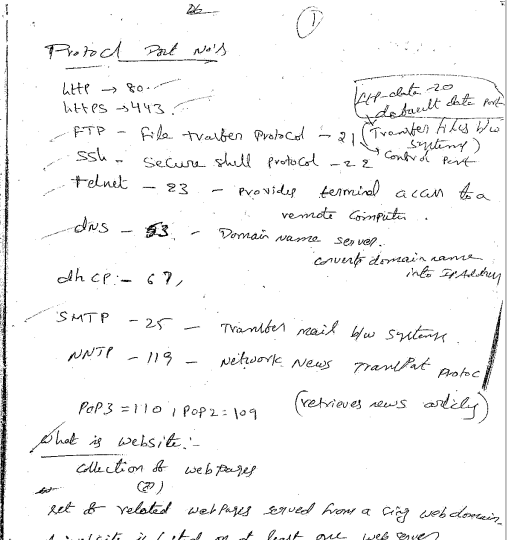 1
Protocol Port No's
http → 80
https → 443
ftp-data 20
default data port
FTP - File transfer Protocol - 21 (Transfer files b/w
systems)
→ Control port
SSh - Secure shell protocol - 22
telnet - 23 - Provides terminal access to a
remote computer.
dNS - 53 - Domain name server.
converts domain name
into IP Address
dhCP:- 67,
SMTP - 25 - Transfer mail b/w systems.
NNTP - 119 - Network News Protoc
POP3 = 110, POP2 = 109 (retrieves news )
What is website:-
collection of web pages
(or)
set of related webpages served from a web domain.
at least one web server